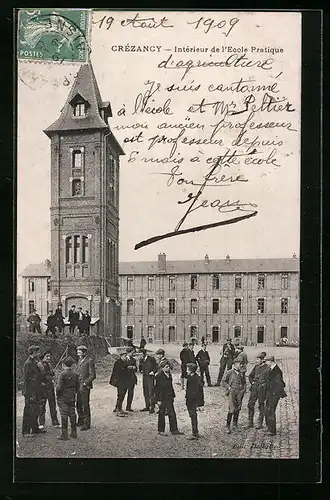 19 Août 1909
CRÉZANCY — Intérieur de l'Ecole Pratique
d'agriculture
Je suis cantonné
à l'école et Mr Peltier
mon ancien professeur
est professeur depuis
6 mois à cette école
Ton frère
Jean